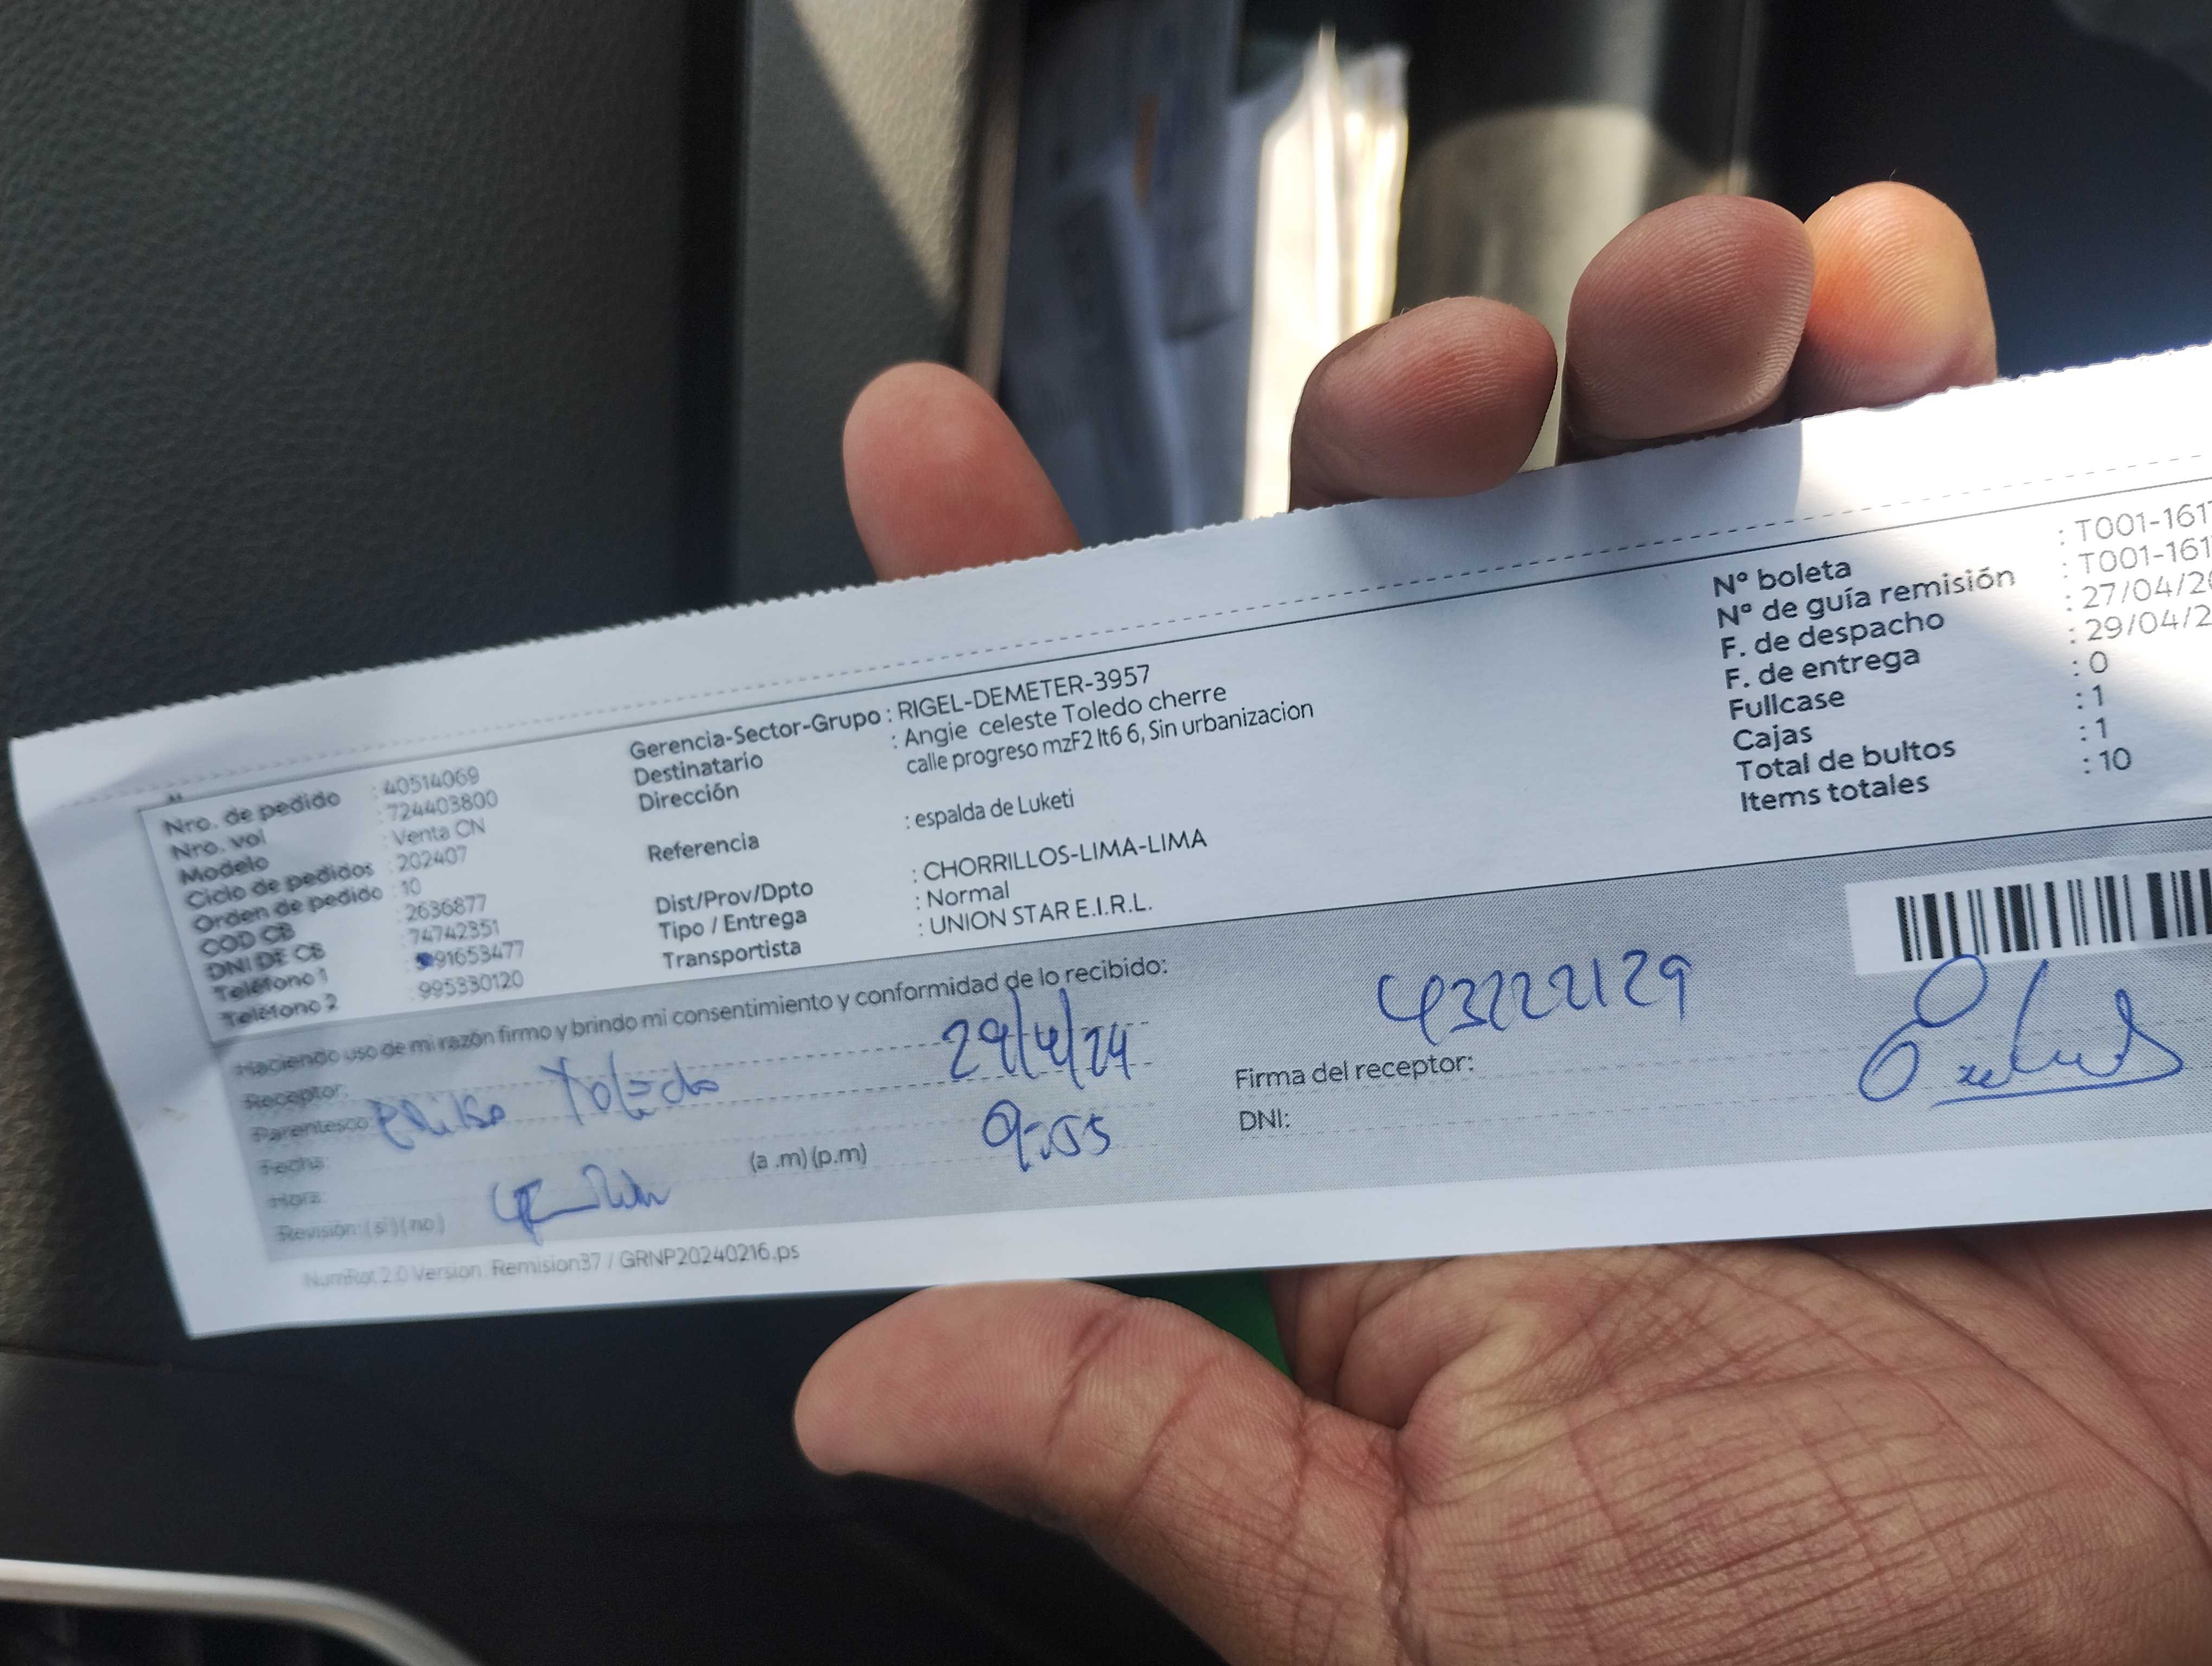 Nro. de pedido : 40514069
Nro. vol : 724403800
Modelo : Venta CN
Ciclo de pedidos : 202407
Orden de pedido : 10
COD CB : 2636877
DNI DE CB : 74742351
Teléfono 1 : 991653477
Teléfono 2 : 995330120
Gerencia-Sector-Grupo : RIGEL-DEMETER-3957
Destinatario : Angie celeste Toledo cherre
Dirección calle progreso mzF2 lt6 6, Sin urbanizacion
Referencia : espalda de Luketi
Dist/Prov/Dpto : CHORRILLOS-LIMA-LIMA
Tipo / Entrega : Normal
Transportista : UNION STAR E.I.R.L.
Nº boleta : T001-161
Nº de guía remisión : T001-161
F. de despacho : 27/04/20
F. de entrega : 29/04/2
Fullcase : 0
Cajas : 1
Total de bultos : 1
Items totales : 10
Haciendo uso de mi razón firmo y brindo mi consentimiento y conformidad de lo recibido:
Receptor: Toledo
Parentesco
Fecha: 29/4/24
Hora: (a .m) (p.m) 9:55
Revisión: (si) (no)
43222129
Firma del receptor:
DNI:
NumRot 2.0 Version. Remision37 / GRNP20240216.ps